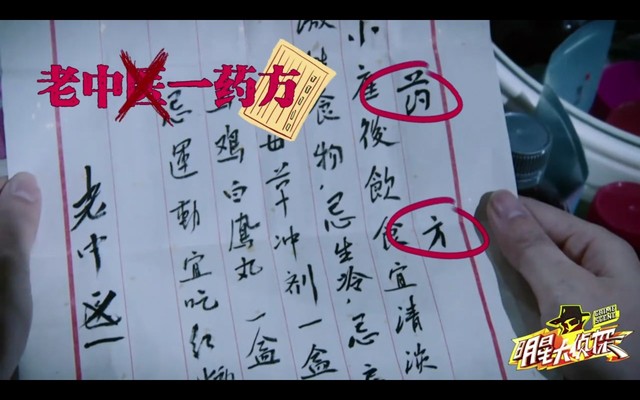 老中医一药方
药方
小產後飲食宜清淡
食物.忌生冷.忌
母草冲剂一盒
鸡白鳳丸 一盒
忌運動宜吃红
老中医一
CRIME SCENE
明星大侦探